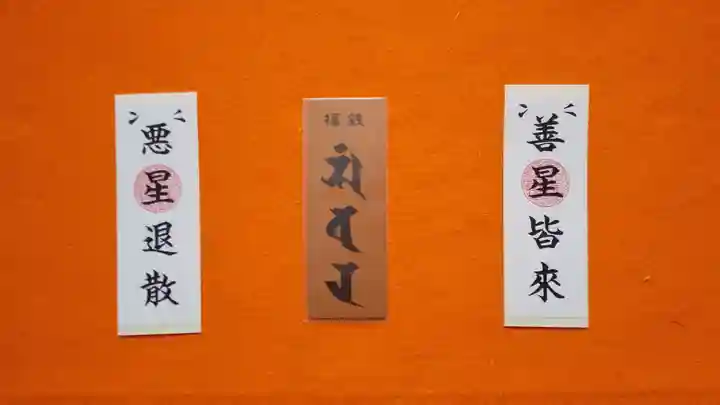 善星皆來
福銭
悪星退散